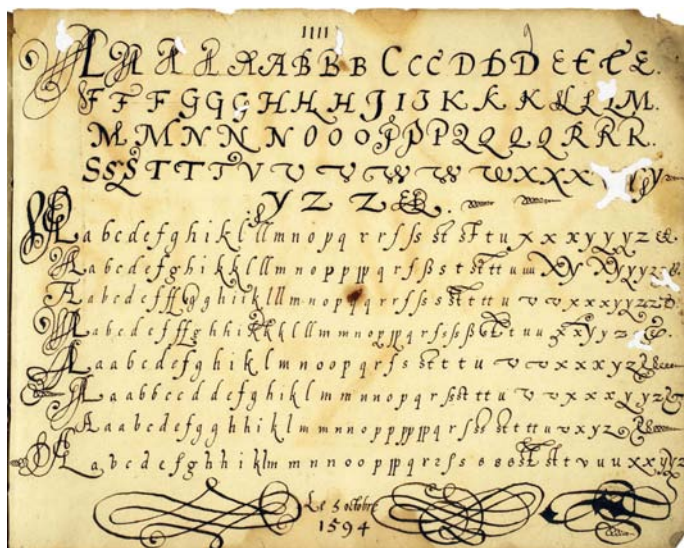 IIII
A A A A A A B B B B C C C D D D D E E E E.
F F F F G G G H H H H J I J K K K K L L L M.
M M M N N N N O O O P P P P Q Q Q Q R R R R.
S S S S T T T T V V V W W W W X X X y
y z z &.
A a b c d e f g h i k l ll m n o p q r r ſ s ſs st ſt t u x x x y y y z &.
A a b c d e f g h i k k l ll m n o p p pp q r ſ ß s t st tt u uu
A a b c d e f ff g g h i i k l ll m n o p q q r r ſ s ſs st tt t u v v x x x y y z z
A a b c d e f ff g h h i k k k l ll m m n o p pp q r ſ s ſs ß st t t u u x x y y z
A a a b c d e f g h i k l m n o o p q r ſ s st t t u v v x x x y z
A a a b b c c d d e f g h i k l m m n n o p q r ſ s st t t u v v x x x y y z
A a a b c d e f g g h h i k l m m n n o p p pp pp q r ſ s s st t t v x y z
A a b c d e f g h h i k l m m m n n o o p pp q r r ſ s s s s st st t t v u u x x y y z
Le 5 octobre
1594